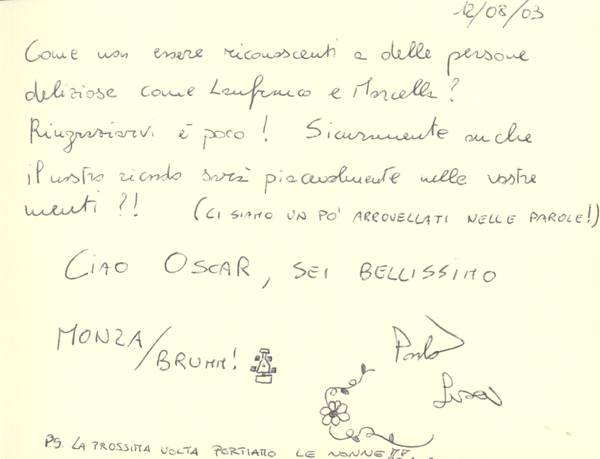 12/08/03
Come non essere riconoscenti a delle persone
deliziose come Lanfranco e Marcella?
Ringraziarvi è poco! Sicuramente anche
il nostro ricordo sarà piacevolmente nelle vostre
menti?! (CI SIAMO UN PO' ARROVELLATI NELLE PAROLE!)
CIAO OSCAR, SEI BELLISSIMO
MONZA/BRUMM!
Paolo
Luisa
PS. LA PROSSIMA VOLTA PORTIAMO LE NONNE!!